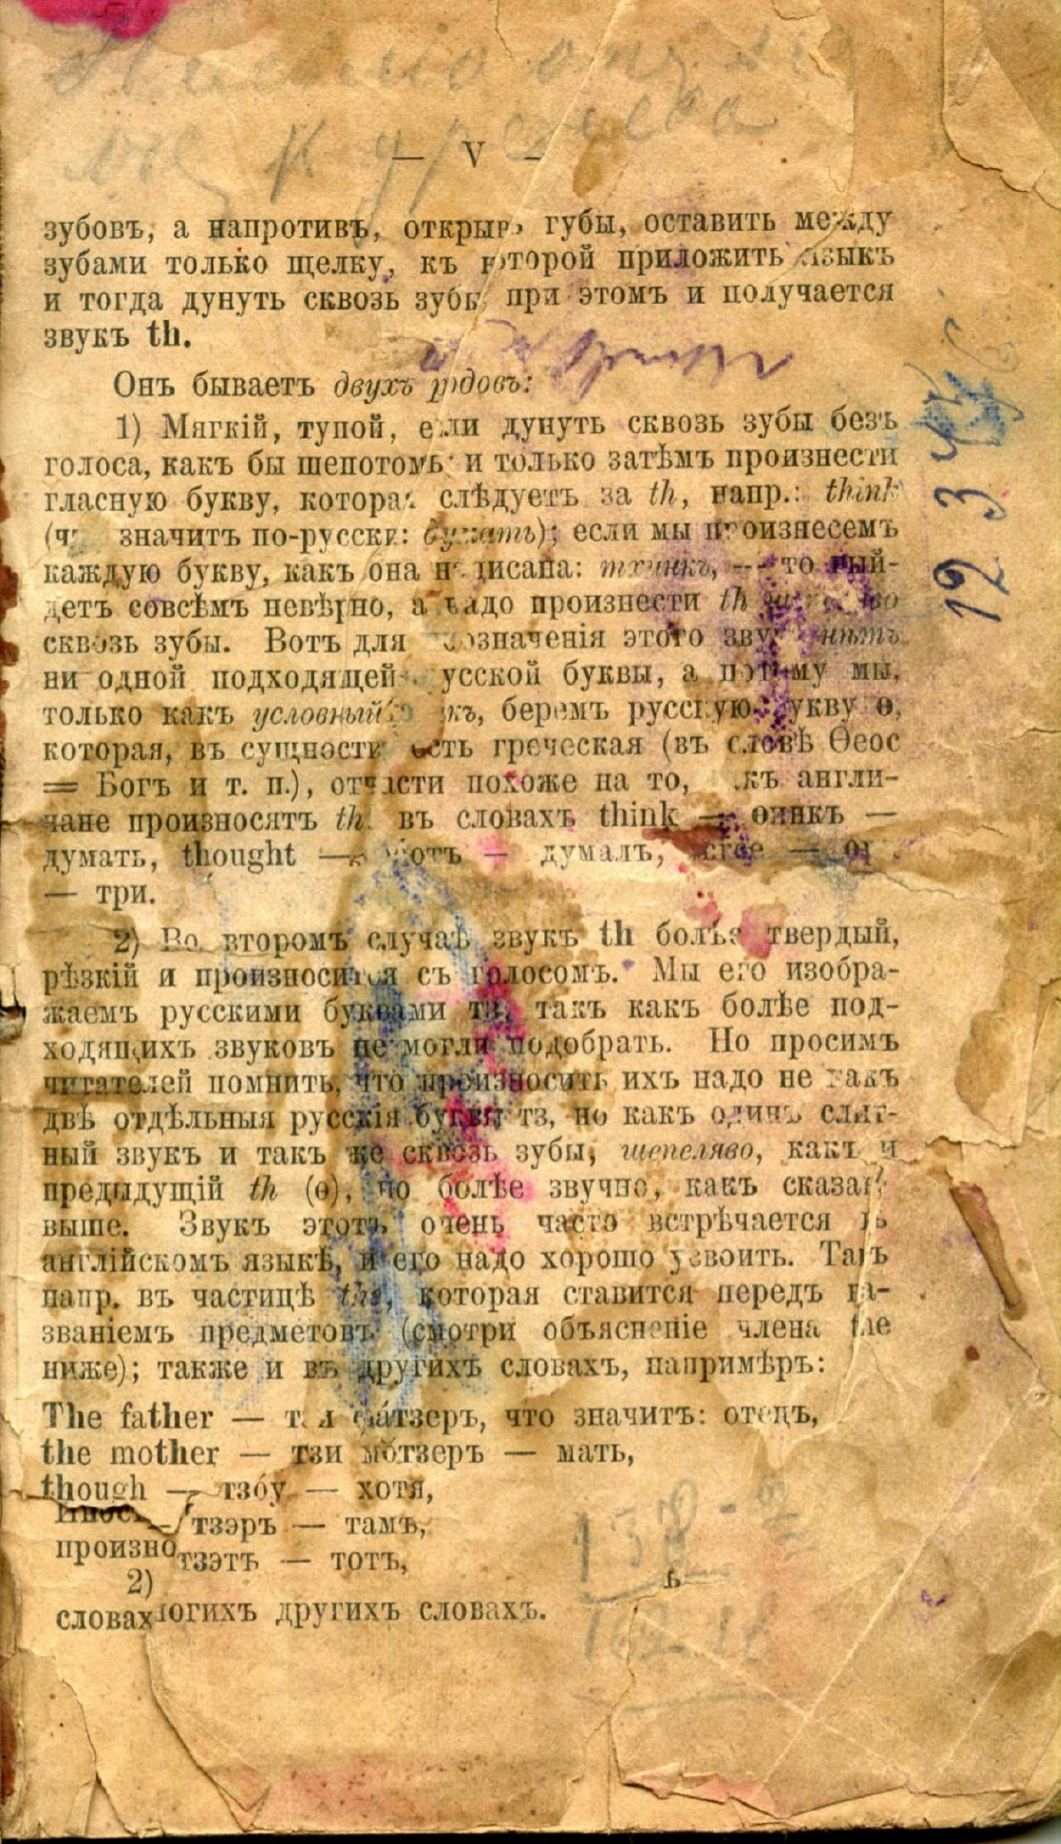 — V —
зубовъ, а напротивъ, открыр губы, оставить между
зубами только щелку, къ которой приложить языкъ
и тогда дунуть сквозь зубы при этомъ и получается
звукъ th.
Онъ бываетъ двухъ родовъ:
1) Мягкій, тупой, если дунуть сквозь зубы безъ
голоса, какъ бы шепотомъ и только затѣмъ произнести
гласную букву, которая слѣдуетъ за th, напр.: think
значитъ по-русски: думать); если мы произнесемъ
каждую букву, какъ она написана: тхинкъ, — то вый-
детъ совсѣмъ невѣрно, а надо произнести th
сквозь зубы. Вотъ для обозначенія этого звука нѣтъ
ни одной подходящей русской буквы, а потому мы,
только какъ условный знакъ, беремъ русскую букву ѳ,
которая, въ сущности есть греческая (въ словѣ Ѳеос
= Богъ и т. п.), отчасти похоже на то, какъ англи-
чане произносятъ th въ словахъ think — ѳинкъ —
думать, thought — ѳотъ — думалъ,
— три.
2) Во второмъ случаѣ звукъ th болѣе твердый,
рѣзкій и произносится съ голосомъ. Мы его изобра-
жаемъ русскими буквами тз, такъ какъ болѣе под-
ходящихъ звуковъ не могли подобрать. Но просимъ
читателей помнить, что произносить ихъ надо не такъ
двѣ отдѣльныя русскія буквы тз, но какъ одинъ слит-
ный звукъ и такъ же сквозь зубы, шепеляво, какъ и
предыдущій th (ѳ), но болѣе звучно, какъ сказано
выше. Звукъ этотъ очень часто встрѣчается въ
англійскомъ языкѣ, и его надо хорошо усвоить. Такъ
напр. въ частицѣ the, которая ставится передъ на-
званіемъ предметовъ (смотри объясненіе члена the
ниже); также и въ другихъ словахъ, напримѣръ:
The father — тзи фáтзеръ, что значитъ: отецъ,
the mother — тзи мóтзеръ — мать,
though — тзóу — хотя,
тзэръ — тамъ,
произно тзэтъ — тотъ,
2)
словах ногихъ другихъ словахъ.
12 3 4